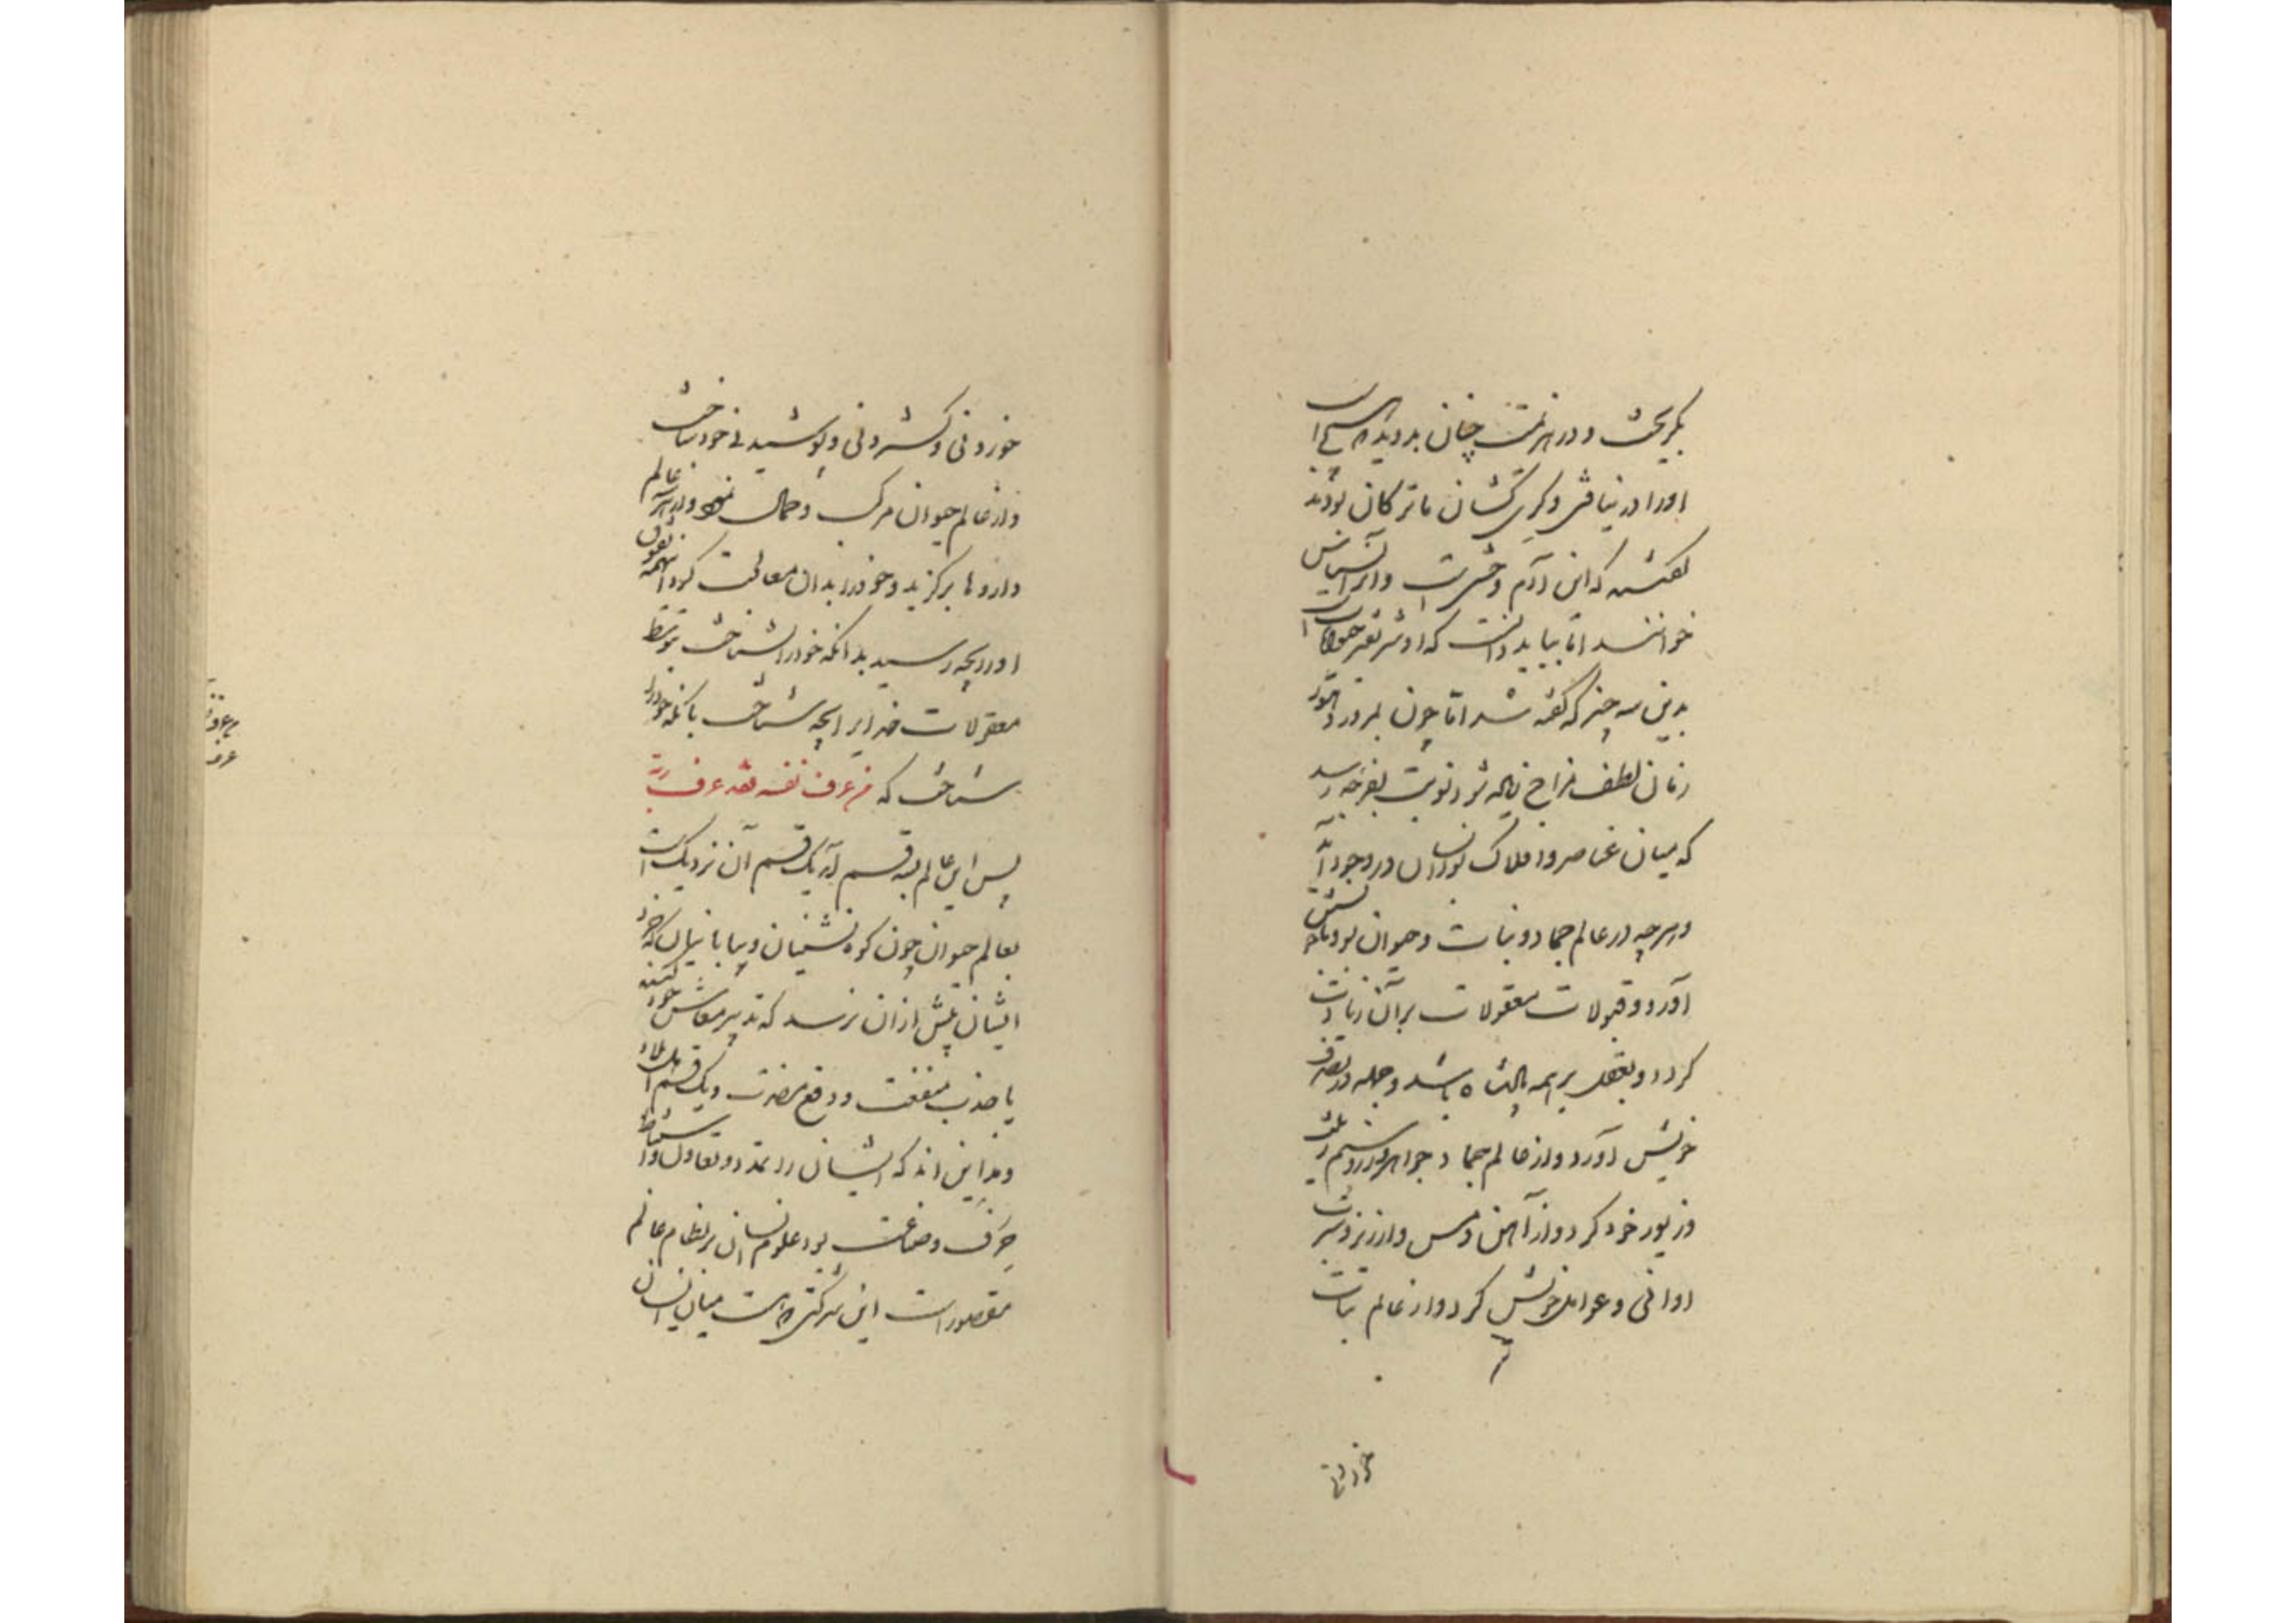 بگریخت و در هزیمت چنان بدوید که اسب
او را در نیافتی و کری کشان ما ترکان بودند
گفتند که این آدم وحشی است و او را نسناس
خوانند اما بباید دانست که او شریفتر حیوان است
بدین سه چیز که گفته شد اما چون بمرور دهور
زمان لطف مزاج زیاده شد و نوبت بفرجه رسید
که میان عناصر و افلاک بود انسان در وجود آمد
و هر چه در عالم جماد و نبات و حیوان بود با خویشتن
آورد و قبولات معقولات بر آن زیادت
کرد و بعقل بر همه پادشاه شد و جمله در تصرف
خویش آورد و از عالم جماد جواهر و زر و سیم
و زیور خود کرد و از آهن و مس و ارزیز و سرب
اوانی و عوامل خویش کرد و از عالم نبات
خوردنی
خوردنی و گستردنی و پوشیدنی خود ساخت
و از عالم حیوان مرکب و حمال و از هر سه عالم
داروها برگزید و خود را بدان معالجت کرد این همه تفوق
او را بچه رسید بدانکه خود را شناخت بتوسط
معقولات خدایرا بچه شناخت بآنکه خود را
شناخت که من عرف نفسه فقد عرف ربه
پس این عالم بسه قسم آمد یک قسم آن نزدیک است
بعالم حیوان چون کوه نشینان و بیابانیان که خود
ایشان بیش از آن نرسد که تدبیر معاش خود کنند
یا جذب منفعت و دفع مضرت و یک قسم اهل بلاد
و مداین اند که ایشان را تمدن و تعاون و استنباط
حرف و صناعت بود و علوم انسان بر نظام عالم
مقصور است این شرکتی که هست میان انسان